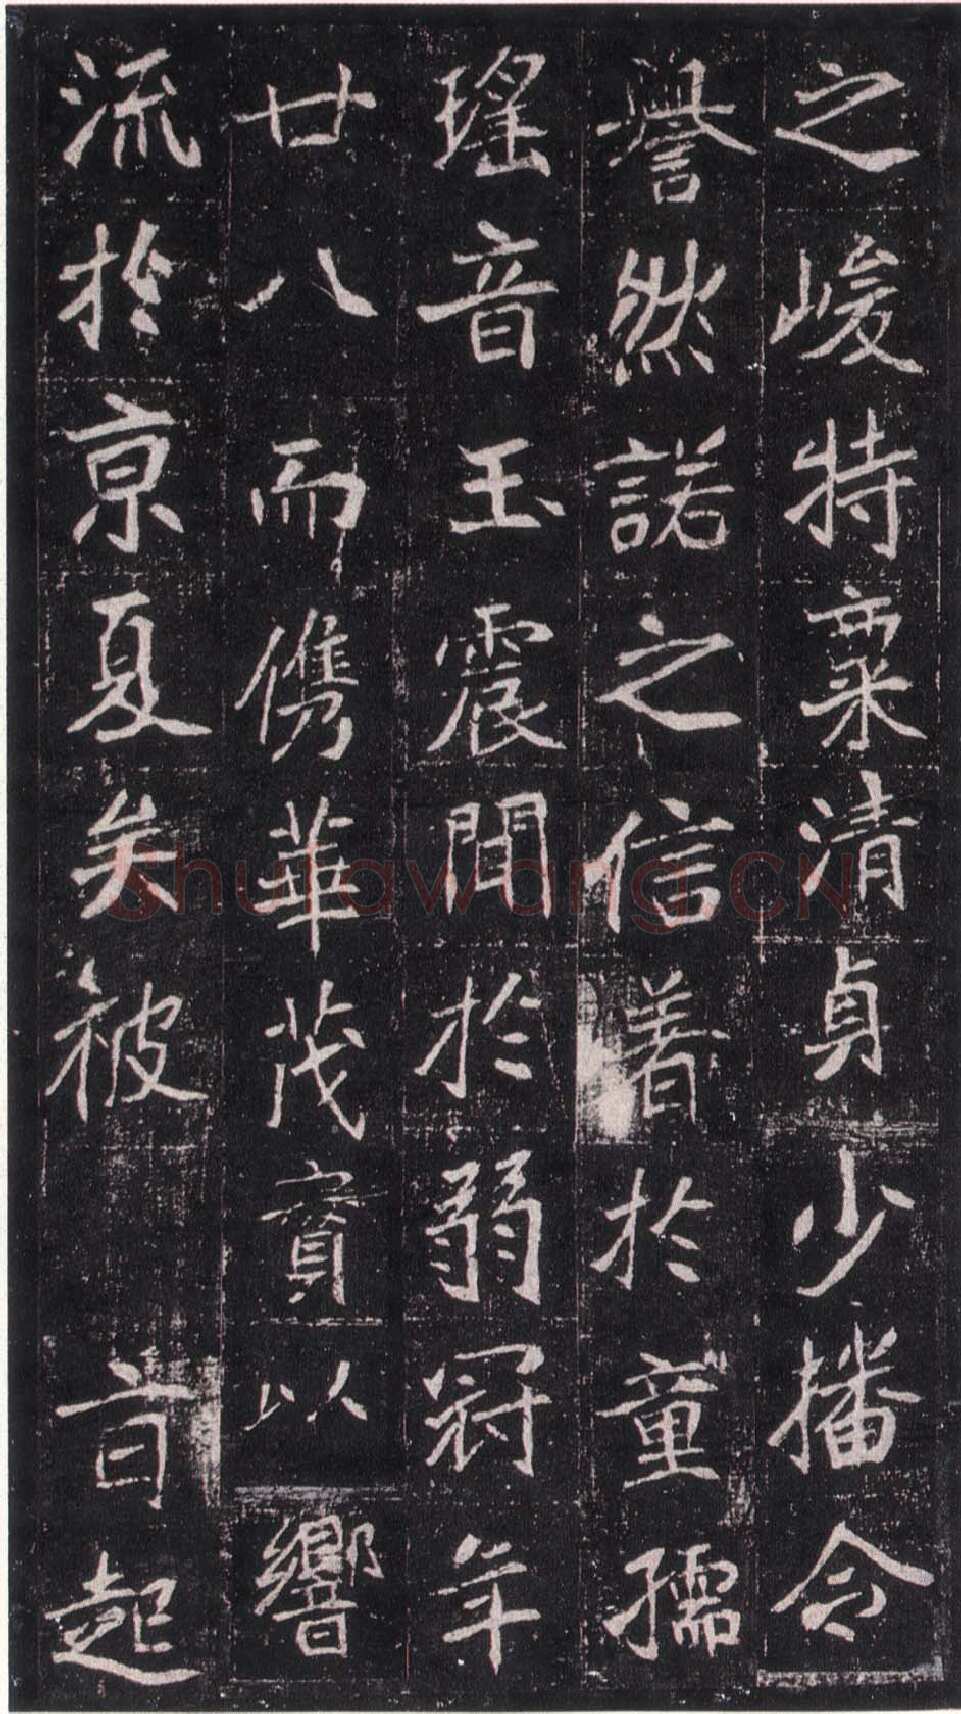 之峻特稟清貞少播令
譽然諾之信著於童孺
瑤音玉震聞於弱冠年
廿八而儁華茂實以響
流於京夏矣被旨起
Shufawang.CN